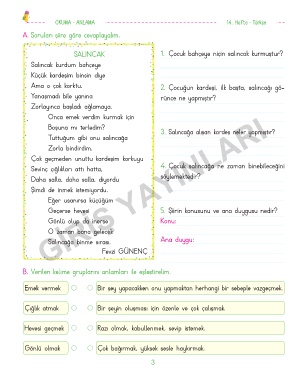 OKUMA - ANLAMA
14. Hafta - Türkçe
A. Soruları şiire göre cevaplayalım.
SALINCAK
Salıncak kurdum bahçeye
Küçük kardeşim binsin diye
Ama o çok korktu.
Yanaşmadı bile yanına
Zorlayınca başladı ağlamaya.
Onca emek verdim kurmak için
Boşuna mı terledim?
Tuttuğum gibi onu salıncağa
Zorla bindirdim.
Çok geçmeden unuttu kardeşim korkuyu
Sevinç çığlıkları attı hatta,
Daha salla, daha salla, diyordu
Şimdi de inmek istemiyordu.
Eğer usanırsa küçüğüm
Geçerse hevesi
Gönlü olup da inerse
O zaman bana gelecek
Salıncağa binme sırası.
Fevzi GÜNENÇ
1. Çocuk bahçeye niçin salıncak kurmuştur?
2. Çocuğun kardeşi, ilk başta, salıncağı gö-
rünce ne yapmıştır?
3. Salıncağa alışan kardeş neler yapmıştır?
4. Çocuk salıncağa ne zaman binebileceğini
söylemektedir?
5. Şiirin konusunu ve ana duygusu nedir?
Konu:
Ana duygu:
GİRİŞ YAYINLARI
B. Verilen kelime gruplarını anlamları ile eşleştirelim.
Emek vermek
Bir şey yapacakken onu yapmaktan herhangi bir sebeple vazgeçmek.
Çığlık atmak
Bir şeyin oluşması için özenle ve çok çalışmak.
Hevesi geçmek
Razı olmak, kabullenmek, sevip istemek.
Gönlü olmak
Çok bağırmak, yüksek sesle haykırmak.
3